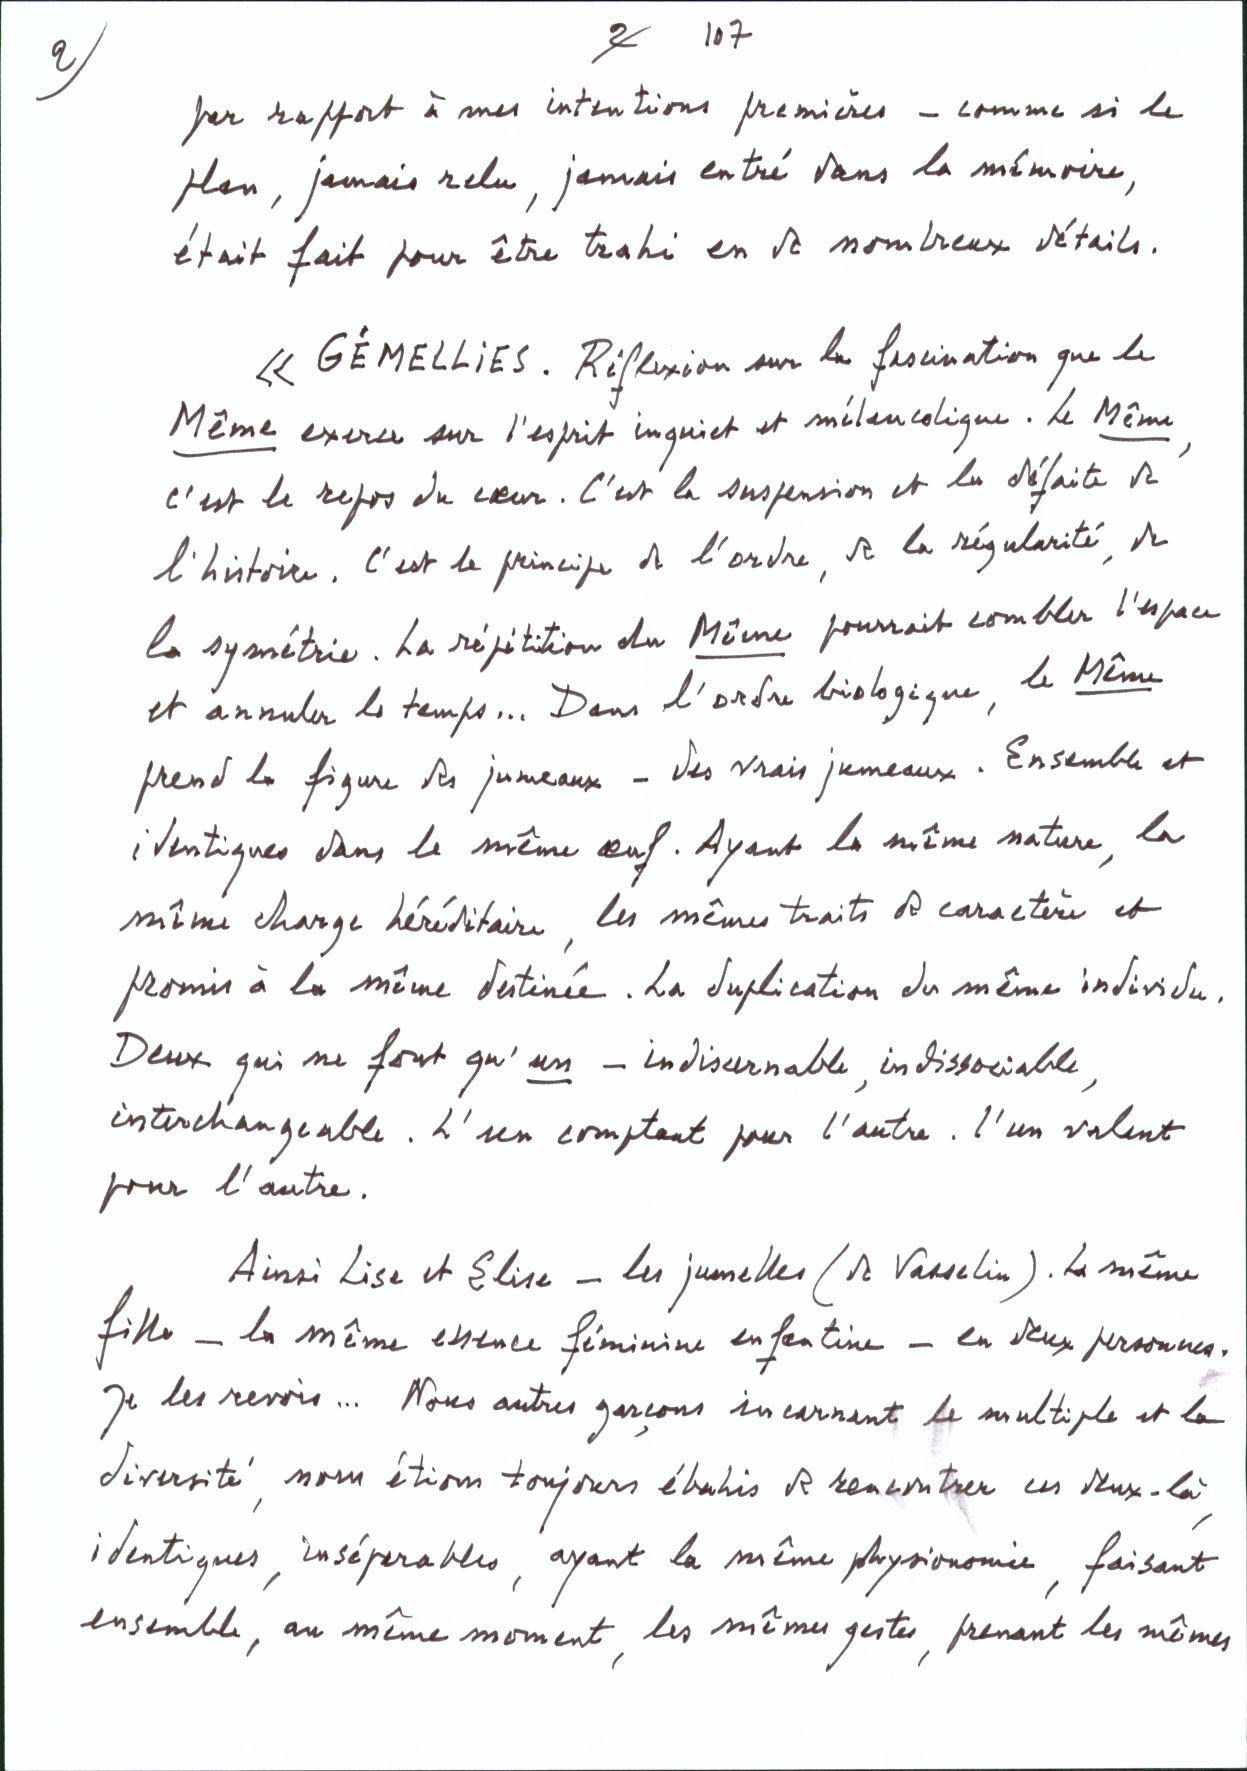 2) 2 107
par rapport à mes intentions premières – comme si le
plan, jamais relu, jamais entré dans la mémoire,
était fait pour être trahi en de nombreux détails.
« GÉMELLIES. Réflexion sur la fascination que le
Même exerce sur l'esprit inquiet et mélancolique. Le Même,
c'est le repos du cœur. C'est la suspension et la défaite de
l'histoire. C'est le principe de l'ordre, de la régularité, de
la symétrie. La répétition du Même pourrait combler l'espace
et annuler le temps... Dans l'ordre biologique, le Même
prend la figure des jumeaux – des vrais jumeaux. Ensemble et
identiques dans le même œuf. Ayant la même nature, la
même charge héréditaire, les mêmes traits de caractère et
promis à la même destinée. La duplication du même individu.
Deux qui ne font qu'un – indiscernable, indissociable,
interchangeable. L'un comptant pour l'autre. l'un valant
pour l'autre.
Ainsi Lise et Elise – les jumelles (de Vasselin). La même
fille – la même essence féminine enfantine – en deux personnes.
Je les revois... Nous autres garçons incarnant le multiple et la
diversité, nous étions toujours ébahis de rencontrer ces deux-là,
identiques, inséparables, ayant la même physionomie, faisant
ensemble, au même moment, les mêmes gestes, prenant les mêmes